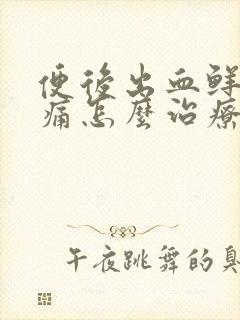 便後出血鲜
痛怎麼治療
午夜跳舞的臭